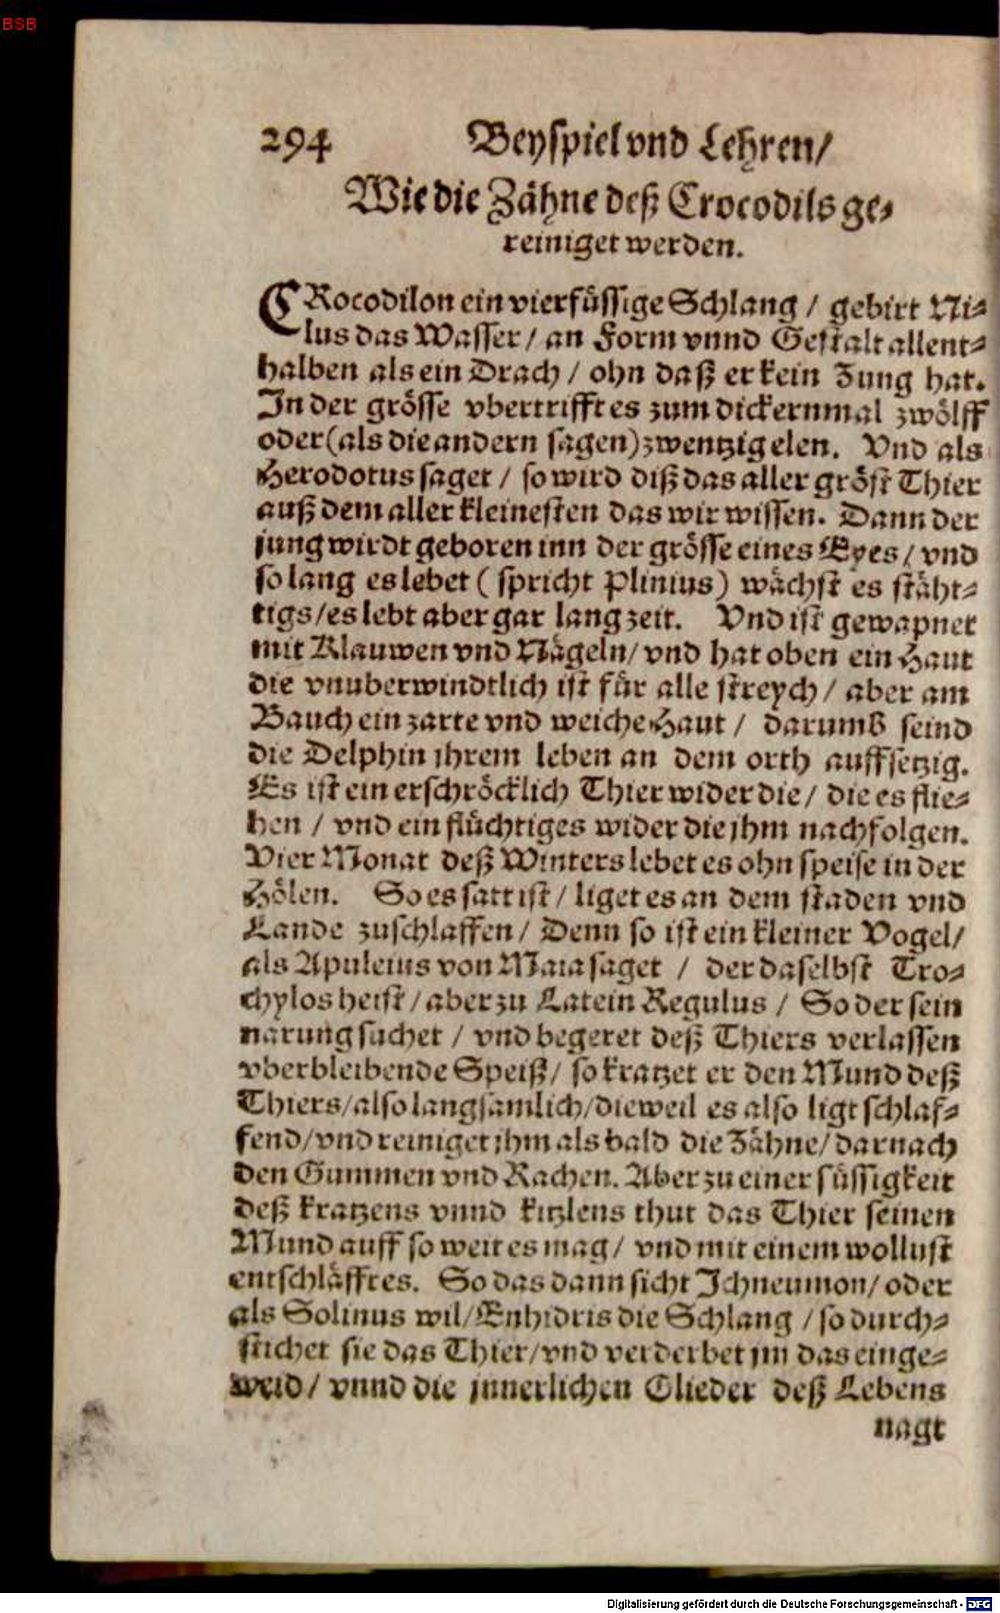 BSB
294 Beyspiel vnd Lehren/
Wie die Zähne deß Crocodils ge-
reiniget werden.
CRocodilon ein vierfüssige Schlang / gebirt Ni-
lus das Wasser / an Form vnnd Gestalt allent-
halben als ein Drach / ohn daß er kein Zung hat.
In der grösse vbertrifft es zum dickernmal zwölff
oder (als die andern sagen) zwentzig elen. Vnd als
Herodotus saget / so wird diß das aller gröst Thier
auß dem aller kleinesten das wir wissen. Dann der
jung wirdt geboren inn der grösse eines Eyes / vnd
so lang es lebet ( spricht Plinius) wächst es stäht-
tigs / es lebt aber gar lang zeit. Vnd ist gewapnet
mit Klauwen vnd Nägeln / vnd hat oben ein Haut
die vnuberwindtlich ist für alle streych / aber am
Bauch ein zarte vnd weiche Haut / darumb seind
die Delphin jhrem leben an dem orth auffsetzig.
Es ist ein erschröcklich Thier wider die / die es flie-
hen / vnd ein flüchtiges wider die jhm nachfolgen.
Vier Monat deß Winters lebet es ohn speise in der
Hölen. So es satt ist / liget es an dem staden vnd
Lande zuschlaffen / Denn so ist ein kleiner Vogel /
als Apuleius von Maia saget / der daselbst Tro-
chylos heist / aber zu Latein Regulus / So der sein
narung suchet / vnd begeret deß Thiers verlassen
vberbleibende Speiß / so kratzet er den Mund deß
Thiers / also langsamlich / dieweil es also ligt schlaf-
fend / vnd reiniget jhm als bald die Zähne / darnach
den Gummen vnd Rachen. Aber zu einer süssigkeit
deß kratzens vnnd kitzlens thut das Thier seinen
Mund auff so weit es mag / vnd mit einem wollust
entschläfft es. So das dann sicht Ichneumon / oder
als Solinus wil / Enhidris die Schlang / so durch-
stichet sie das Thier / vnd verderbet jm das einge-
weid / vnnd die jnnerlichen Glieder deß Lebens
nagt
Digitalisierung gefördert durch die Deutsche Forschungsgemeinschaft - DFG